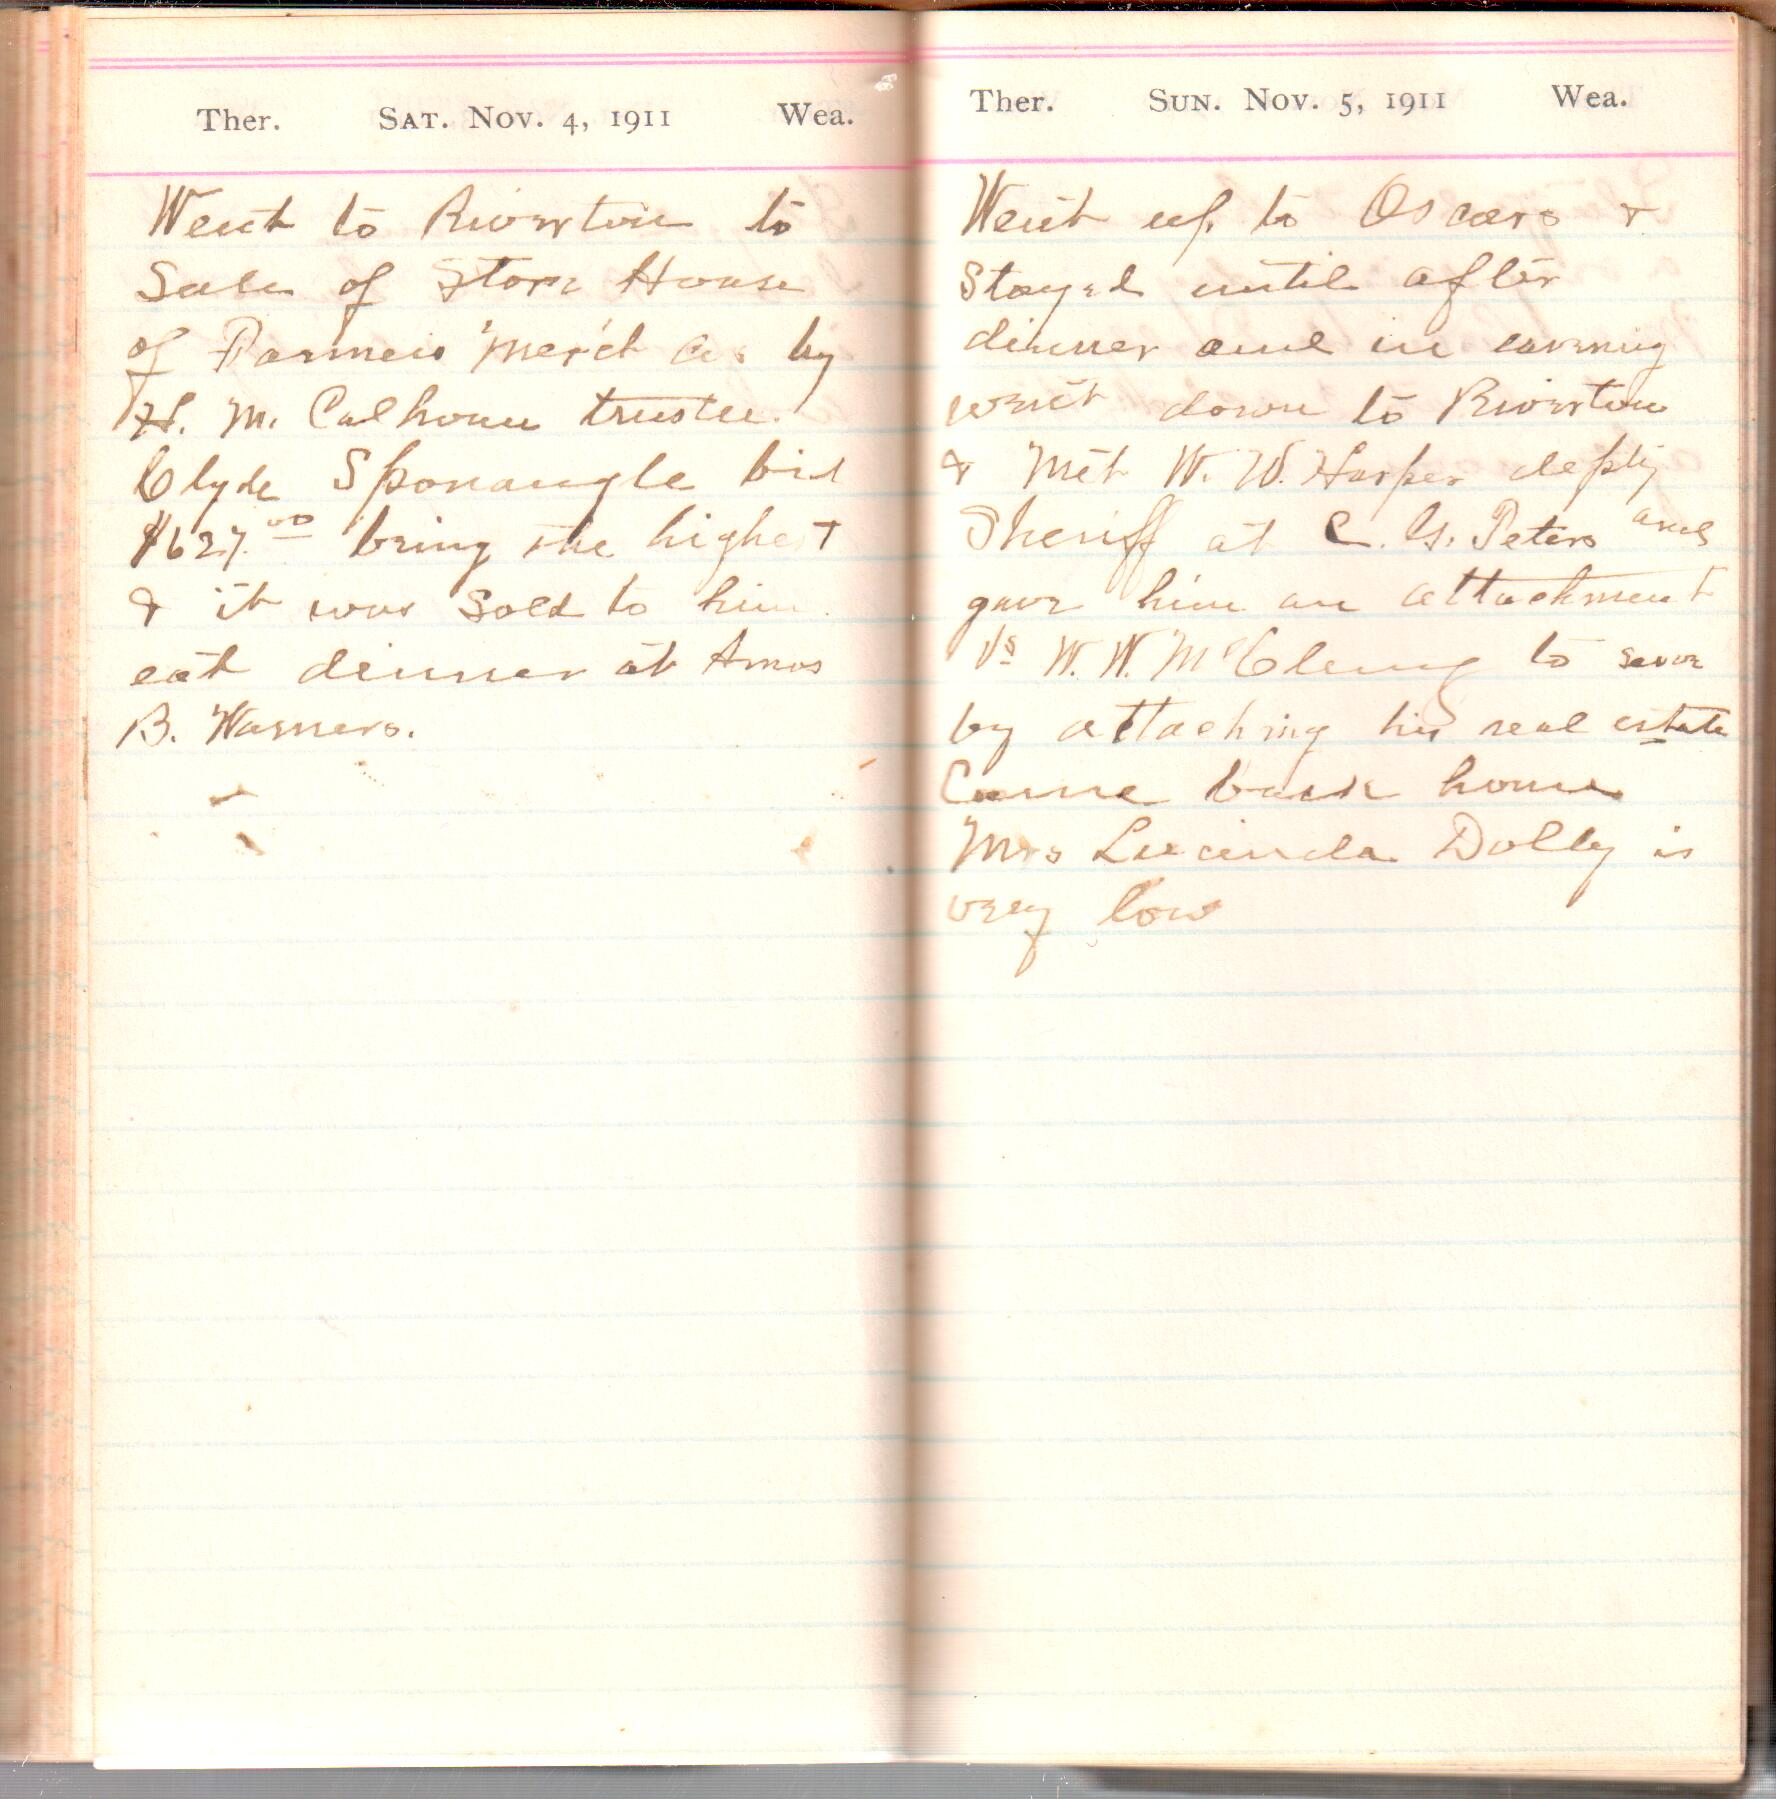 Ther. Sat. Nov. 4, 1911 Wea.
Went to Riverton to
Sale of Store House
of Farmers Merch Co. by
H. M. Calhoun trustee.
Clyde Sponaugle bid
$627.00 being the highest
& it was sold to him
eat dinner at Amos
B. Warners.
Ther. Sun. Nov. 5, 1911 Wea.
Went up to Oscars &
stayed until after
dinner and in evening
went down to Riverton
& Met W. W. Harper depty
Sheriff at C. G. Peters and
gave him an attachment
Vs W. W. McClung to
by attaching his real estate
Came back home
Mrs Lucinda Dolly is
very low